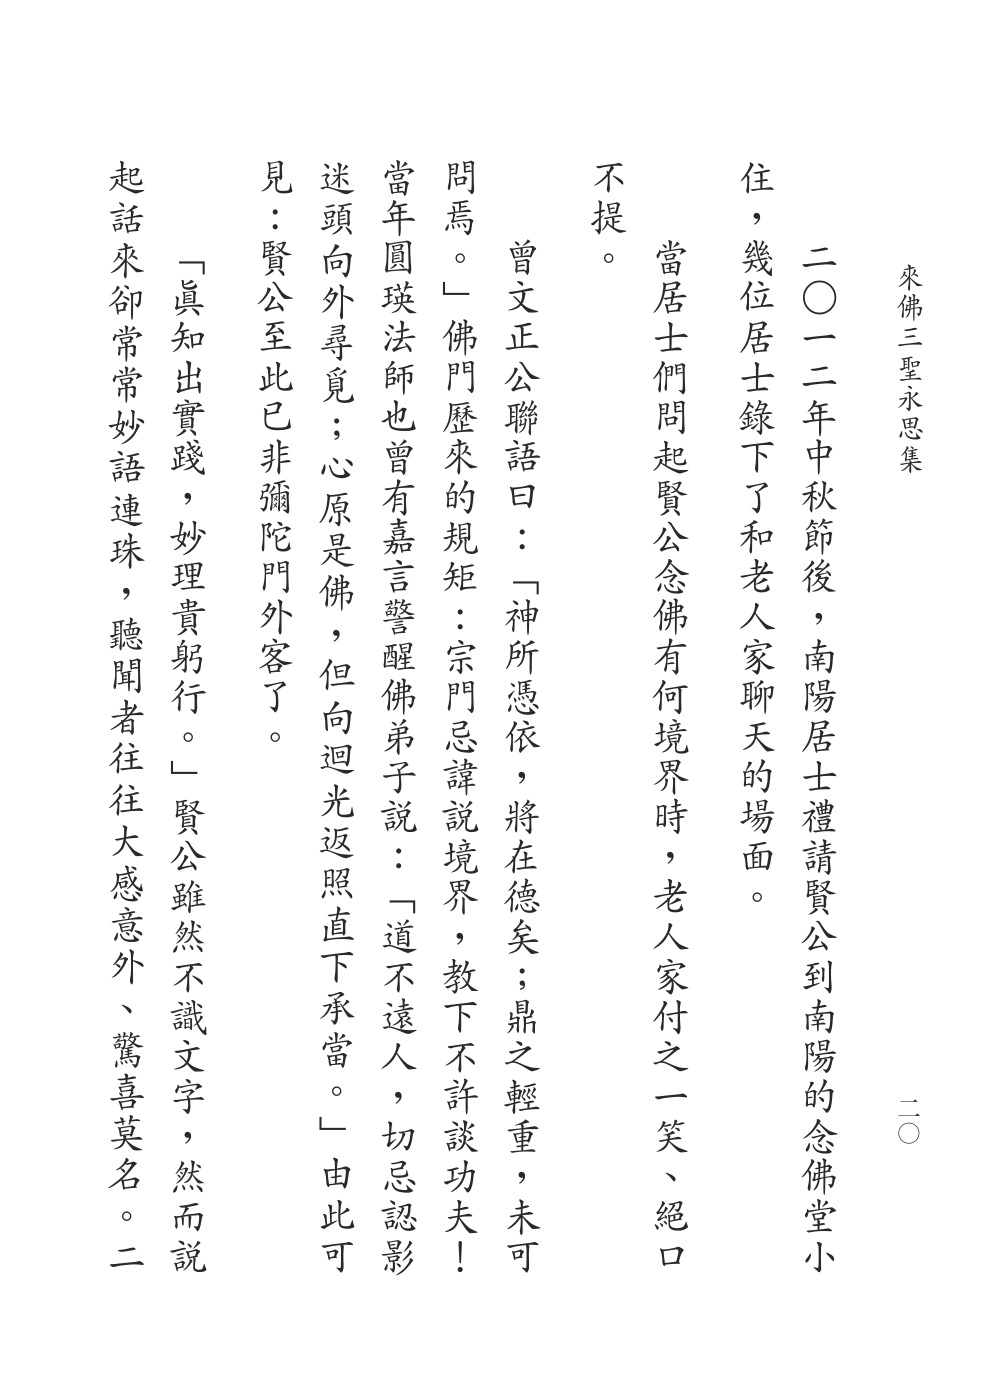 來佛三聖永思集
二〇
二〇一二年中秋節後，南陽居士禮請賢公到南陽的念佛堂小
住，幾位居士錄下了和老人家聊天的場面。
當居士們問起賢公念佛有何境界時，老人家付之一笑、絕口
不提。
曾文正公聯語曰：「神所憑依，將在德矣；鼎之輕重，未可
問焉。」佛門歷來的規矩：宗門忌諱説境界，教下不許談功夫！
當年圓瑛法師也曾有嘉言警醒佛弟子説：「道不遠人，切忌認影
迷頭向外尋覓；心原是佛，但向迴光返照直下承當。」由此可
見：賢公至此已非彌陀門外客了。
「眞知出實踐，妙理貴躬行。」賢公雖然不識文字，然而説
起話來卻常常妙語連珠，聽聞者往往大感意外、驚喜莫名。二